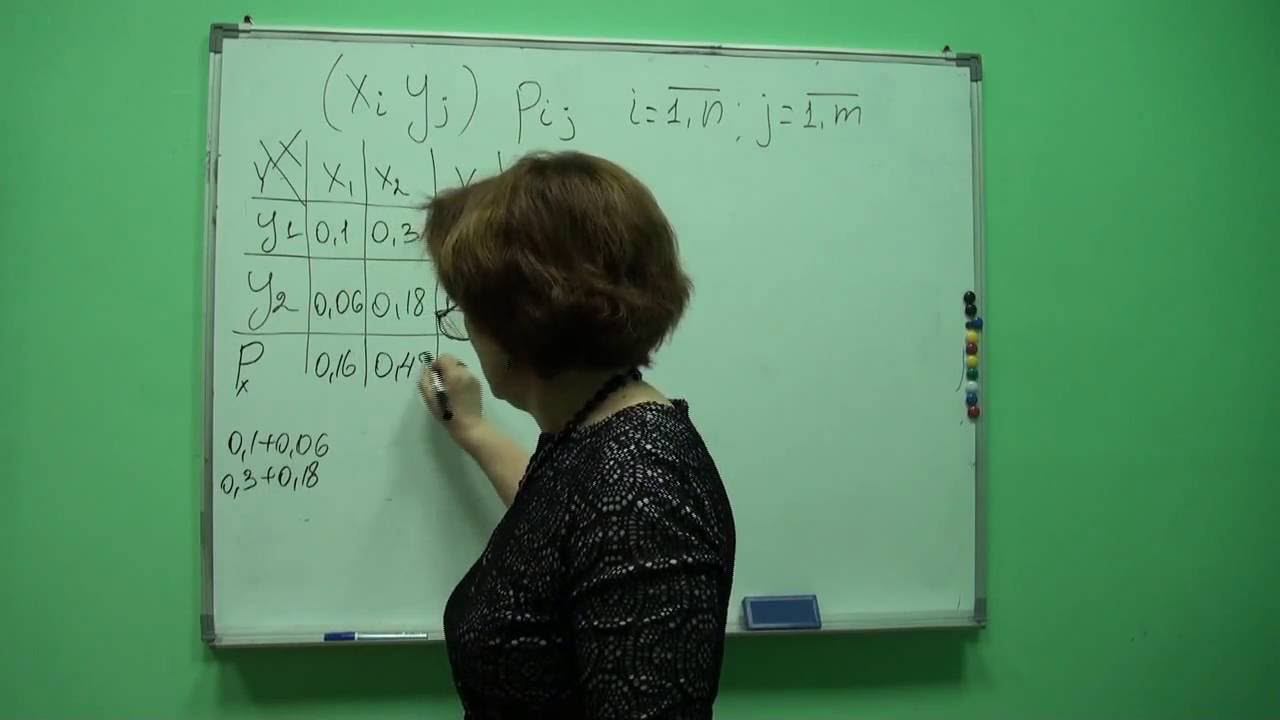 (Xi Yj) Pij i=1,n; j=1,m
Y X X1 X2
Y1 0,1 0,3
Y2 0,06 0,18
Px 0,16 0,48
0,1+0,06
0,3+0,18